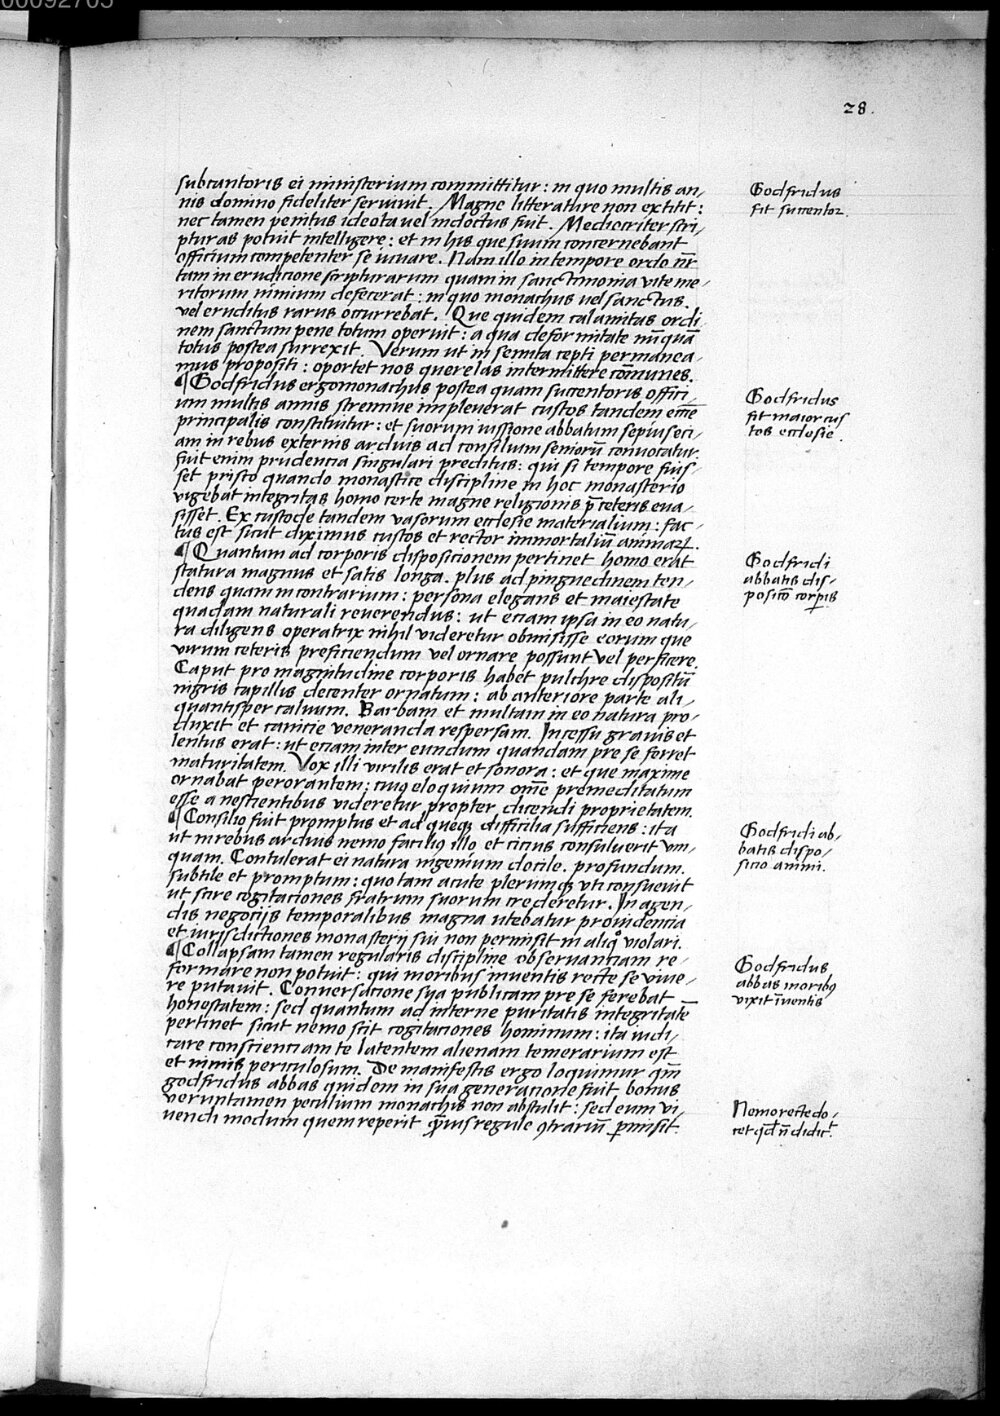 00092705
28.
subcantoris ei ministerium committitur: in quo multis an/
nis domino fideliter seruiuit. Magne litterature non extitit:
nec tamen penitus ideota uel indoctus fuit. Mediocriter scri/
pturas potuit intelligere: et in his que suum concernebant
officium competenter se iuuare. Nam illo in tempore ordo nr̄
tam in erudicione scripturarum quam in sanctimonia vite me/
ritorum nimium defecerat: in quo monachus uel sanctus.
vel eruditus rarus occurrebat. Que quidem calamitas ordi
nem sanctum pene totum operuit: a qua deformitate nūquā
totus postea surrexit. Verum ut in semita cepti permanea/
mus propositi: oportet nos querelas intermittere cōmunes.
¶Godfridus ergo monachus postea quam succentoris offici/
um multis annis strennue impleuerat custos tandem eccīe
principalis constituitur: et suorum iussione abbatum sepius eci/
am in rebus externis arduis ad consilium seniorū conuocatur.
fuit enim prudencia singulari preditus: qui si tempore fuis/
set prisco quando monastice discipline in hoc monasterio
vigebat integritas homo certe magne religionis p̄ ceteris eua/
sisset. Ex custode tandem vasorum ecclesie materialium: fac/
tus est sicut diximus custos et rector immortaliū animaꝝ.
¶Quantum ad corporis disposicionem pertinet homo erat
statura magnus et satis longa. plus ad pinguedinem ten/
dens quam in contrarium: persona elegans et maiestate
quadam naturali reuerendus: ut eciam ipsa in eo natu/
ra diligens operatrix nihil videretur obmisisse eorum que
virum ceteris preficiendum vel ornare possunt vel perficere.
Caput pro magnitudine corporis habet pulchre dispositū
nigris capillis decenter ornatum: ab anteriore parte ali/
quantisper caluum. Barbam et multam in eo natura pro/
duxit et canicie veneranda respersam. Incessu grauis et
lentus erat: ut eciam inter eundum quandam pre se ferret
maturitatem. Vox illi virilis erat et sonora: et que maxime
ornabat perorantem: cuiꝯ eloquium om̄e premeditatum
esse a nescientibus videretur propter dicendi proprietatem.
¶Consilio fuit promptus et ad queqꝫ difficilia sufficiens: ita
ut in rebus arduis nemo faciliꝯ illo et cicius consuluerit vn/
quam. Contulerat ei natura ingenium docile. profundum.
subtile et promptum: quo tam acute plerumqꝫ vti consueuit
ut scire cogitaciones fratrum suorum crederetur. In agen/
dis negocijs temporalibus magna utebatur prouidencia
et iurisdictiones monasterij sui non permisit in aliqͦ violari.
¶Collapsam tamen regularis discipline obseruantiam re/
formare non potuit: qui moribus inuentis recte se viue/
re putauit. Conuersacione sua publicam pre se ferebat
honestatem: sed quantum ad interne puritatis integritatē
pertinet sicut nemo scit cogitaciones hominum: ita iudi/
care conscienciam te latentem alienam temerarium est
et nimis periculosum. De manifestis ergo loquimur qm̄
godfridus abbas quidem in sua generacione fuit bonus
veruntamen peculium monachis non abstulit: sed eum vi/
uendi modum quem reperit qͣmuis regule ꝯtrariū ꝑmisit.
Godfridus
fit succentor.
Godfridus
fit maior cus
tos ecclesie.
Godfridi
abbatis dis/
posicō corꝑis
Godfridi ab/
batis dispo/
sicio animi.
Godfridus
abbas moribꝯ
vixit īuentis
Nemo recte do/
cet qd̄ n̄ didicᵗ.